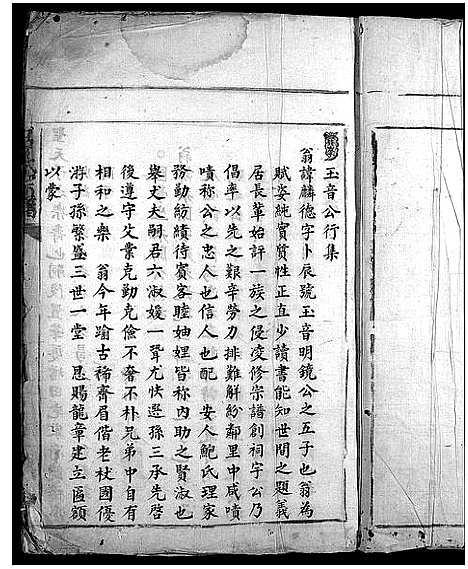 玉音公行集
翁諱麟德字卜辰號玉音明鏡公之五子也翁為
賦姿純實質性正直少讀書能知世間之題義
居長輩始評一族之侵凌修宗譜創祠宇公乃
倡率以先之艱辛勞力排難解紛鄰里中咸嘖
嘖称公之忠人也信人也配 安人鮑氏理家
務勤紡績待賓客睦妯娌皆称內助之賢淑也
舉丈夫嗣君六淑媛一聳尤快选孫三承先啓
後遵守父業克勤克儉不奢不朴兄弟中自有
相和之樂 翁今年踰古稀齊眉偕老杖國優
游子孫繁盛三世一堂 恩賜龍章建立匾額
以蒙